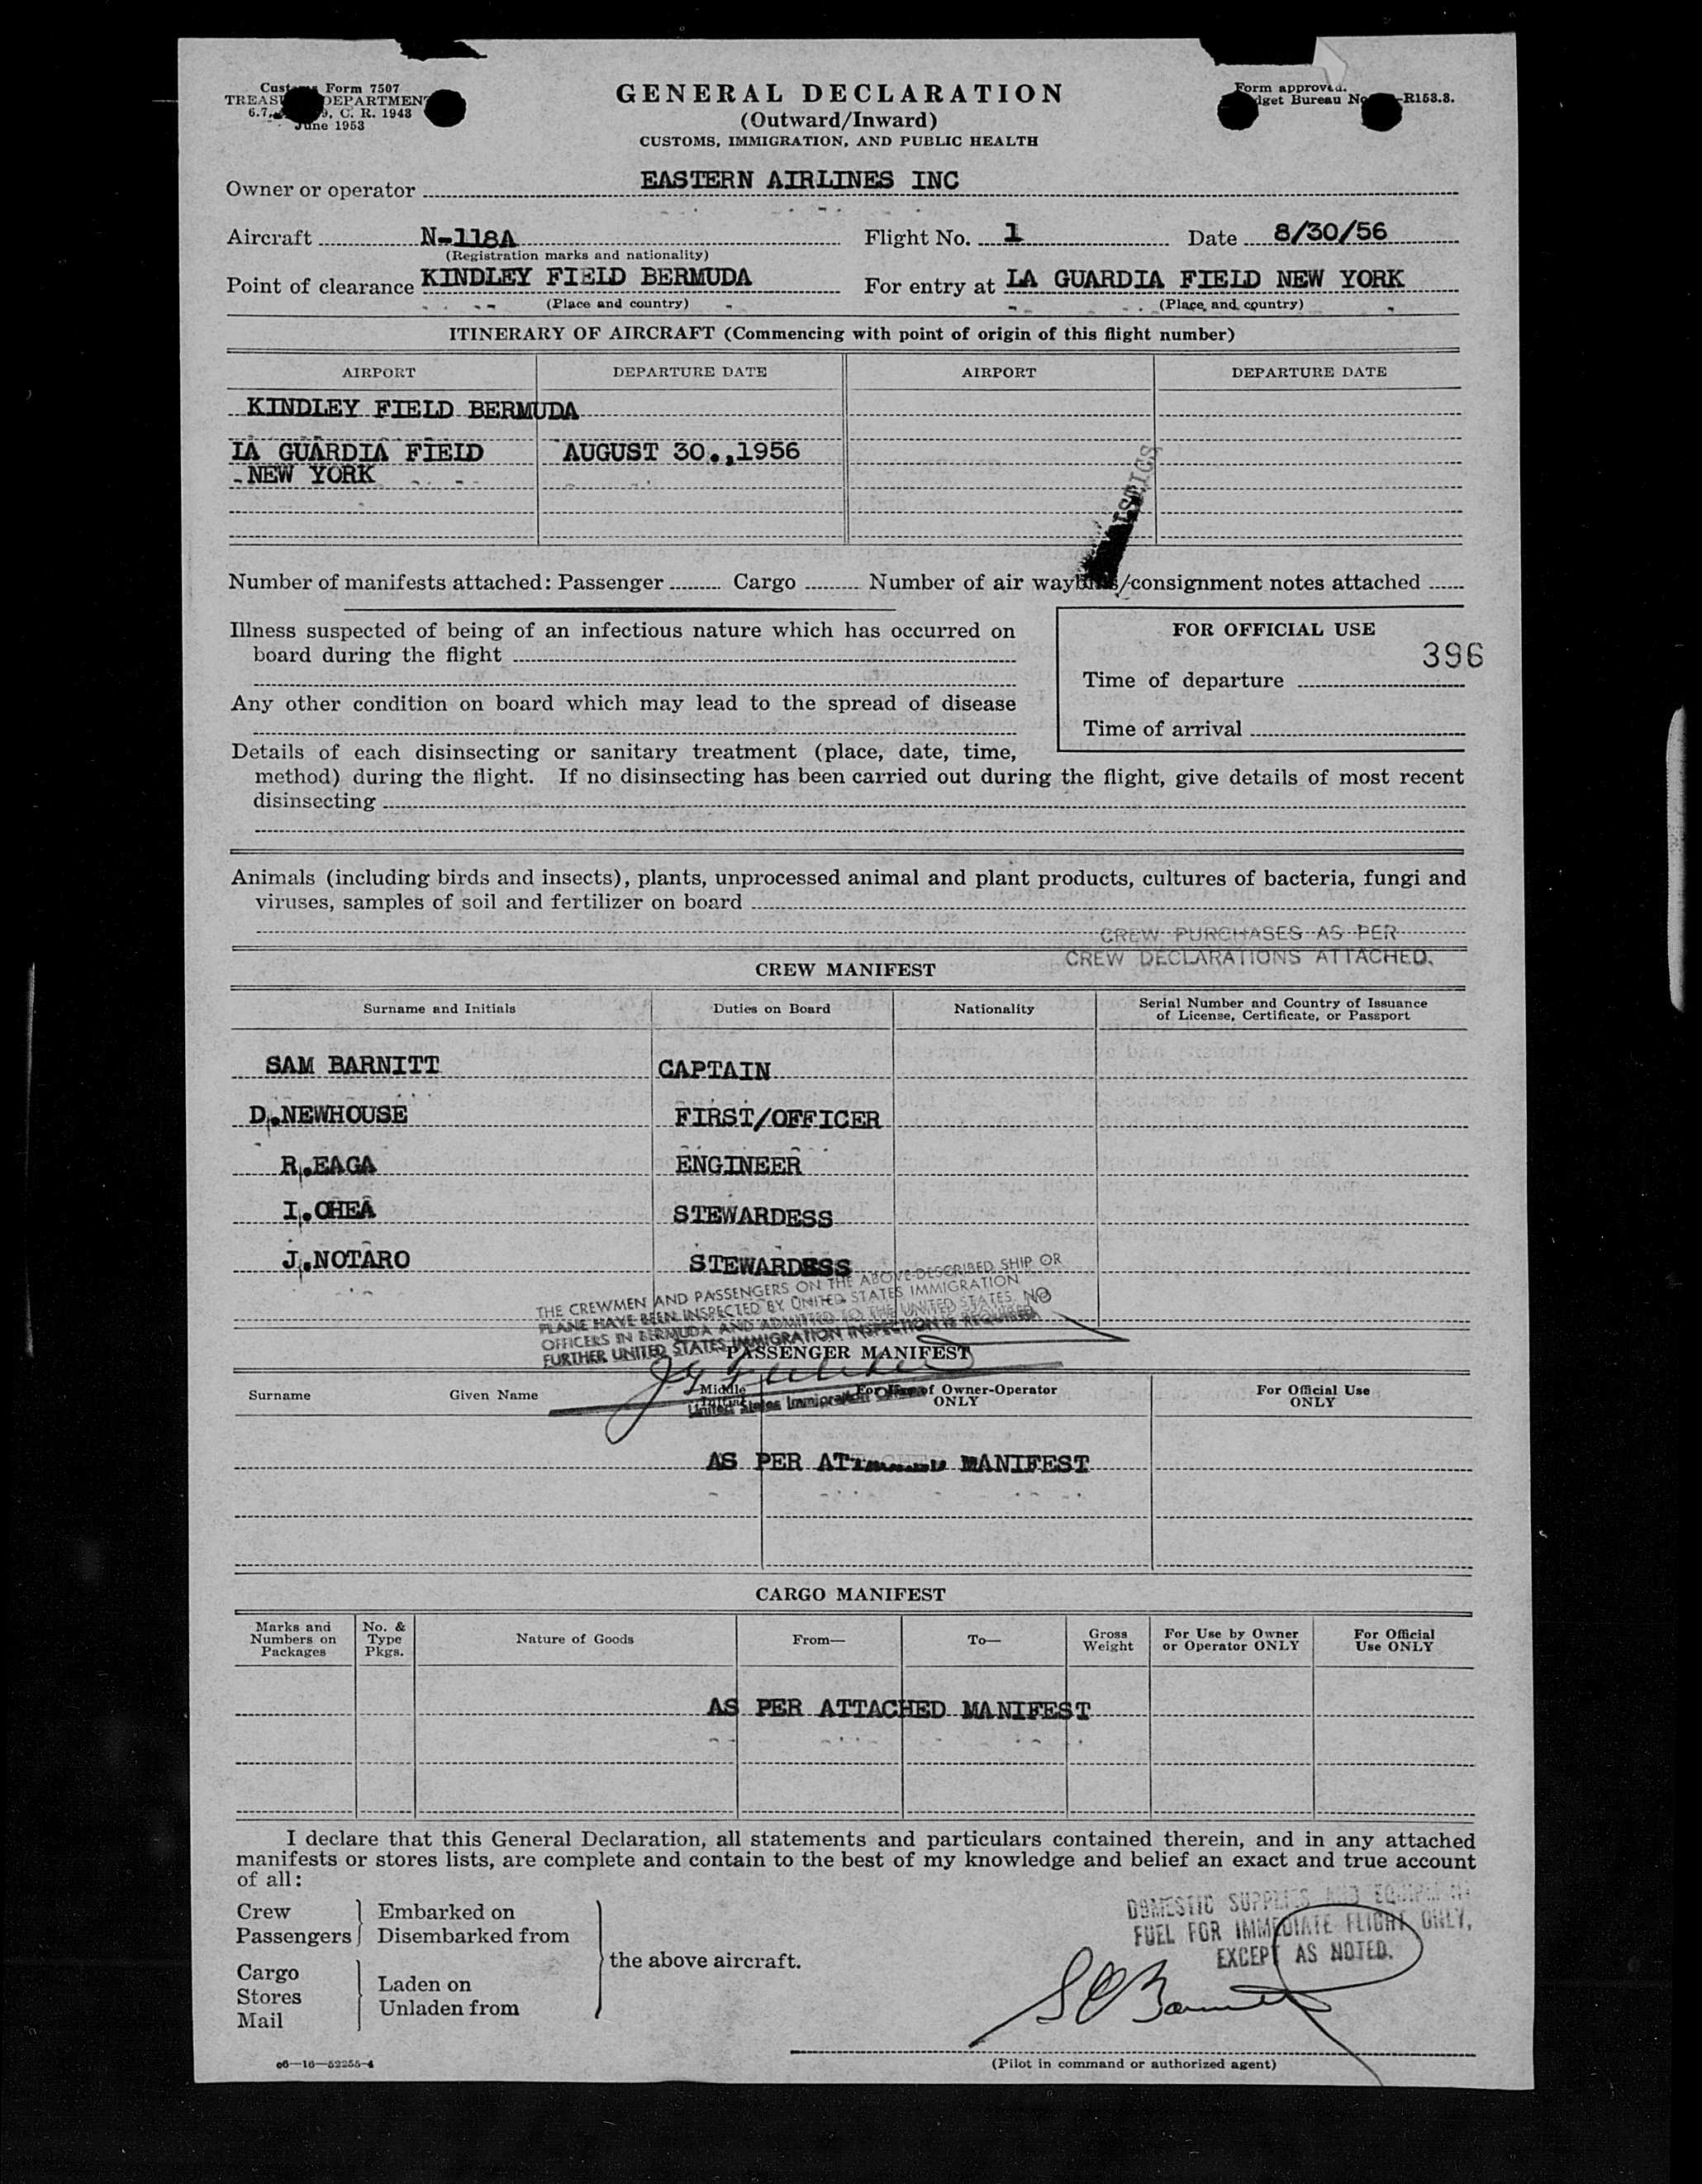 Form 7507
GENERAL DECLARATION
Form approved.
TREASURY DEPARTMENT
(Outward/Inward)
Budget Bureau No. -R153.3.
C. R. 1943
June 1953
CUSTOMS, IMMIGRATION, AND PUBLIC HEALTH
Owner or operator EASTERN AIRLINES INC
Aircraft N-118A Flight No. 1 Date 8/30/56
(Registration marks and nationality)
Point of clearance KINDLEY FIELD BERMUDA For entry at LA GUARDIA FIELD NEW YORK
(Place and country) (Place and country)
ITINERARY OF AIRCRAFT (Commencing with point of origin of this flight number)
AIRPORT DEPARTURE DATE AIRPORT DEPARTURE DATE
KINDLEY FIELD BERMUDA
LA GUARDIA FIELD AUGUST 30.,1956
NEW YORK
Number of manifests attached: Passenger Cargo Number of air waybills/consignment notes attached
Illness suspected of being of an infectious nature which has occurred on
board during the flight
Any other condition on board which may lead to the spread of disease
FOR OFFICIAL USE
396
Time of departure
Time of arrival
Details of each disinsecting or sanitary treatment (place, date, time,
method) during the flight. If no disinsecting has been carried out during the flight, give details of most recent
disinsecting
Animals (including birds and insects), plants, unprocessed animal and plant products, cultures of bacteria, fungi and
viruses, samples of soil and fertilizer on board
CREW PURCHASES AS PER
CREW DECLARATIONS ATTACHED.
CREW MANIFEST
Surname and Initials Duties on Board Nationality Serial Number and Country of Issuance
of License, Certificate, or Passport
SAM BARNITT CAPTAIN
D.NEWHOUSE FIRST/OFFICER
R.EAGA ENGINEER
I.OHEA STEWARDESS
J.NOTARO STEWARDESS
THE CREWMEN AND PASSENGERS ON THE ABOVE-DESCRIBED SHIP OR
PLANE HAVE BEEN INSPECTED BY UNITED STATES IMMIGRATION
OFFICERS IN BERMUDA AND ADMITTED TO THE UNITED STATES. NO
FURTHER UNITED STATES IMMIGRATION INSPECTION IS REQUIRED
PASSENGER MANIFEST
Surname Given Name Middle Initial For Use of Owner-Operator
ONLY
For Official Use
ONLY
United States Immigration Officer
AS PER ATTACHED MANIFEST
CARGO MANIFEST
Marks and
Numbers on
Packages
No. &
Type
Pkgs.
Nature of Goods
From—
To—
Gross
Weight
For Use by Owner
or Operator ONLY
For Official
Use ONLY
AS PER ATTACHED MANIFEST
I declare that this General Declaration, all statements and particulars contained therein, and in any attached
manifests or stores lists, are complete and contain to the best of my knowledge and belief an exact and true account
of all:
Crew
Passengers
Embarked on
Disembarked from
Cargo
Stores
Mail
Laden on
Unladen from
the above aircraft.
DOMESTIC SUPPLIES AND EQUIPMENT
FUEL FOR IMMEDIATE FLIGHT ONLY,
EXCEPT AS NOTED.
(Pilot in command or authorized agent)
c6—16—52255-4